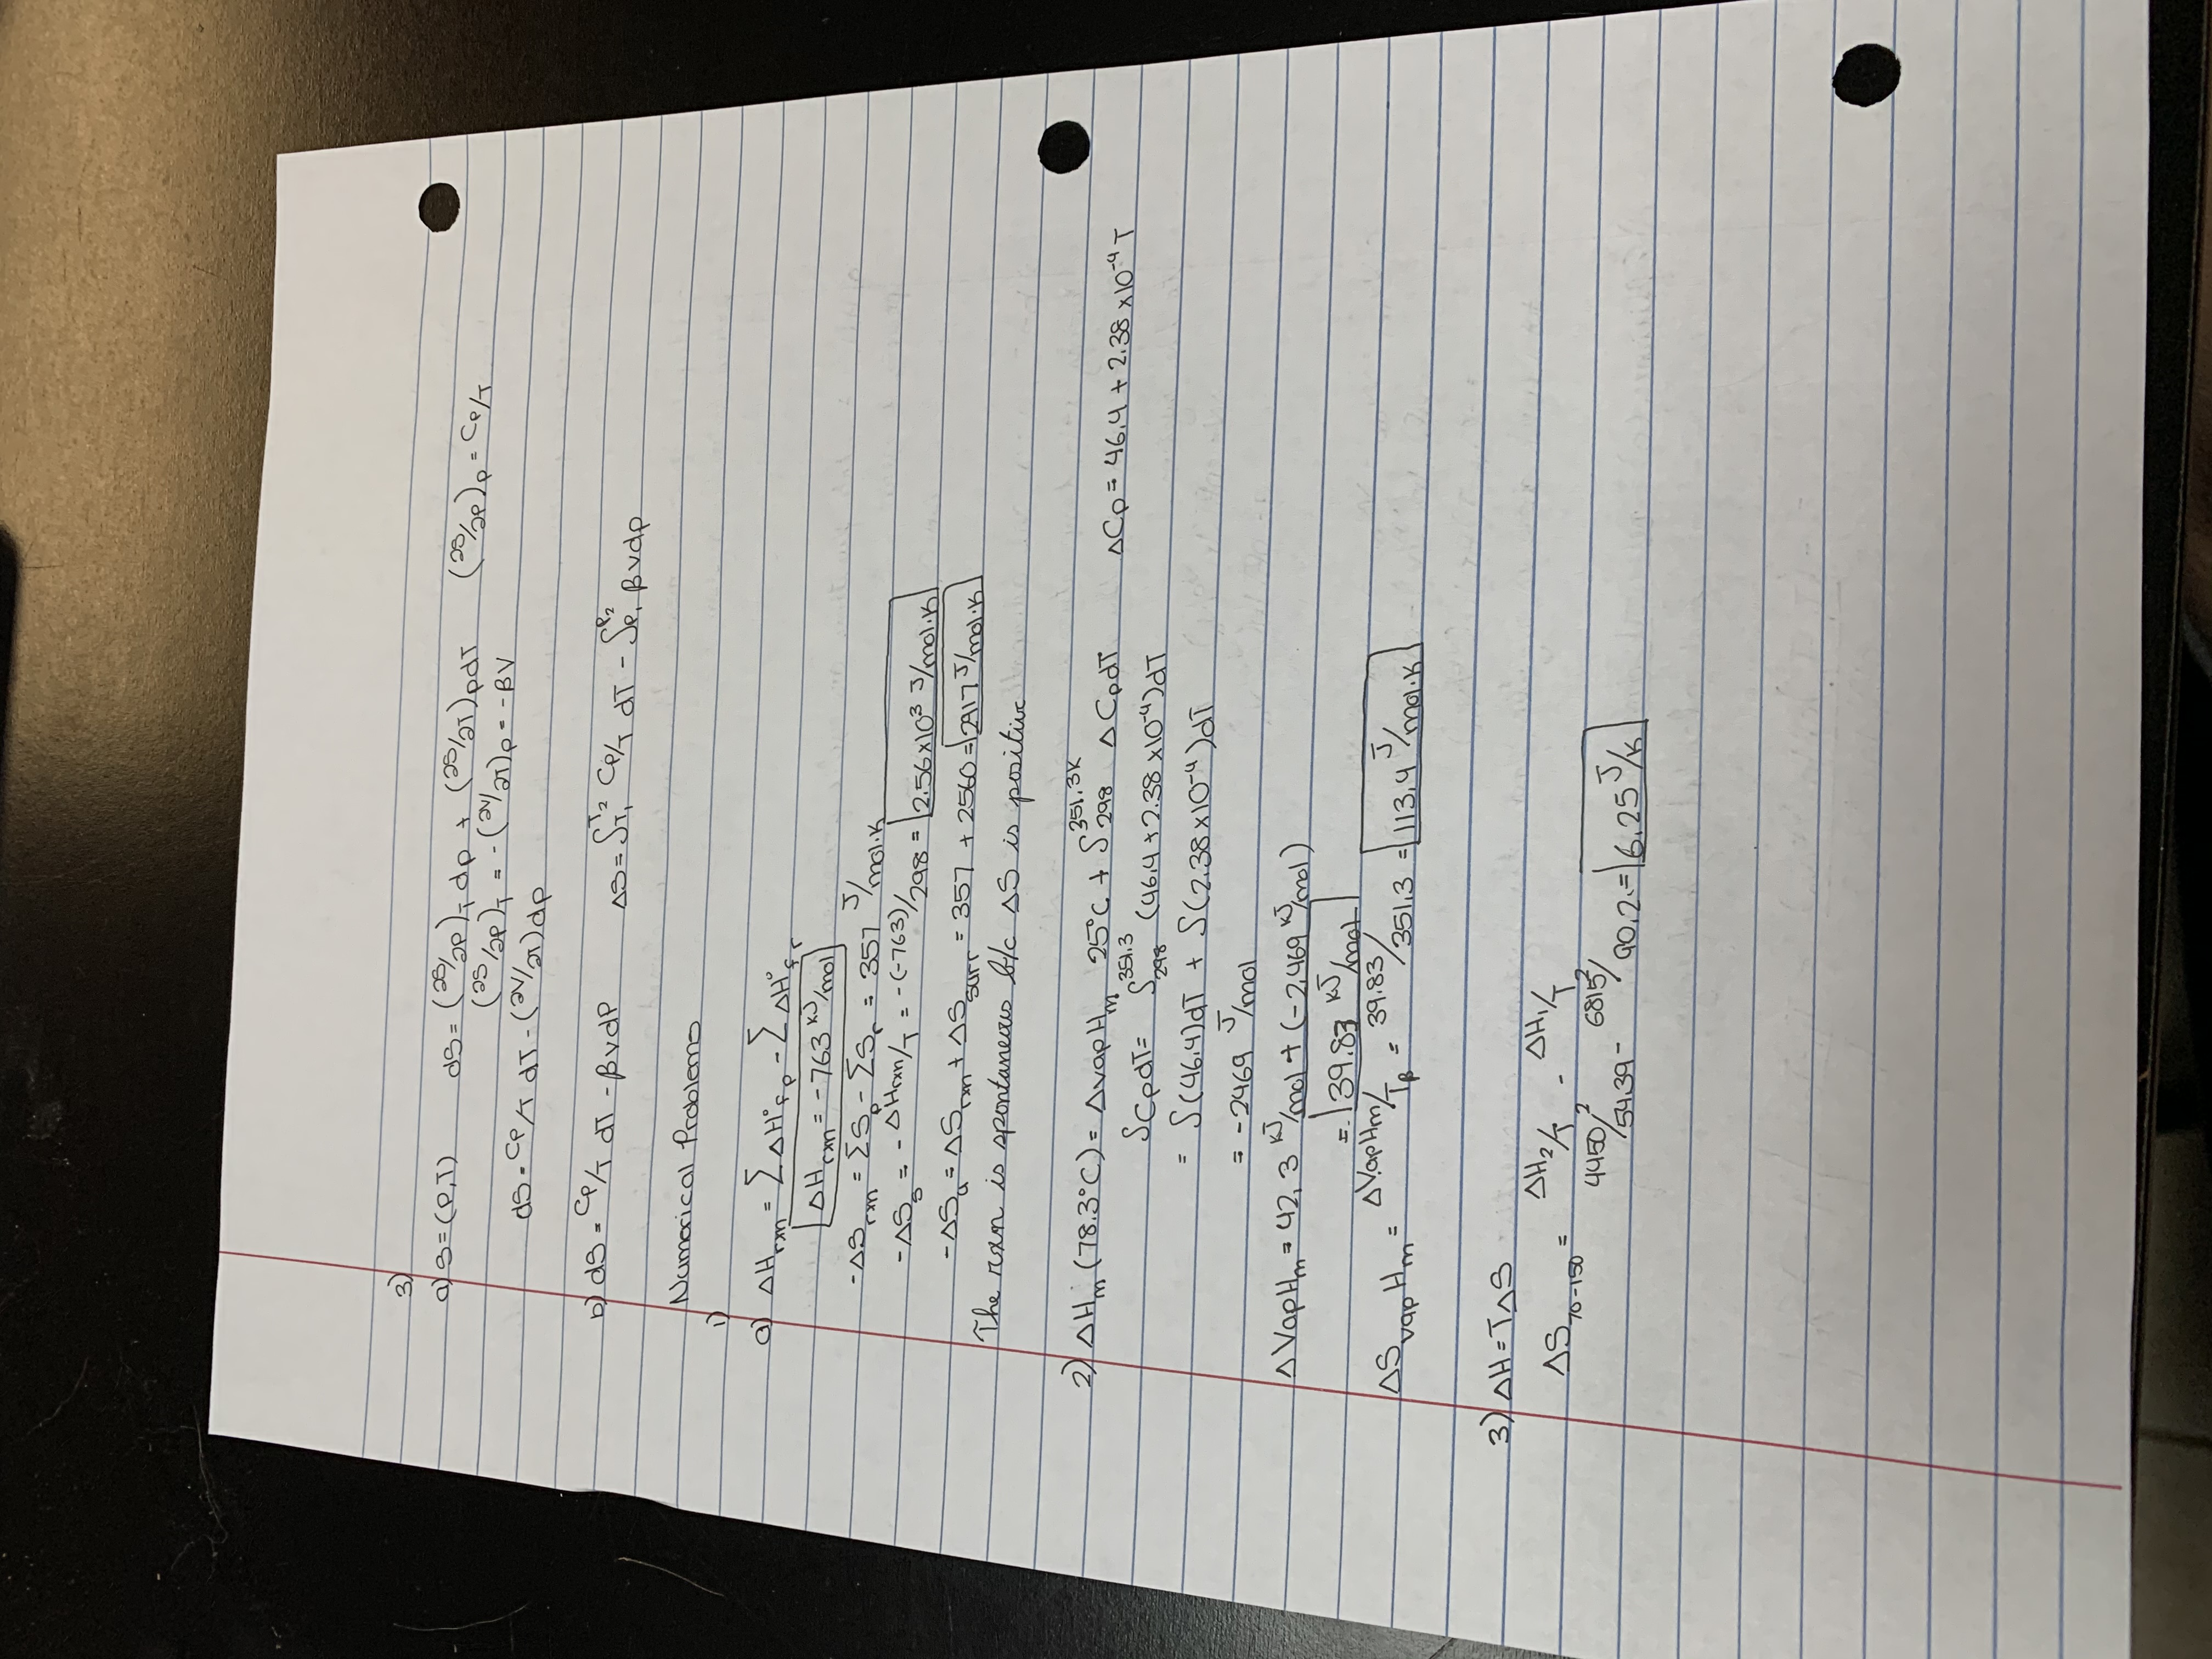 3)
a) S=(P,T) dS= (∂S/∂P)_T dp + (∂S/∂T)_P dT (∂S/∂P)_P = Cp/T
(∂S/∂P)_T = -(∂V/∂T)_P = -βV
dS = Cp/T dT - (∂V/∂T)dp
b) dS = Cp/T dT - βVdP ΔS = ∫_T₁^T₂ Cp/T dT - ∫_P₁^P₂ βVdp
Numerical Problems
1)
a) ΔH_rxn = ΣΔH°_f p - ΣΔH°_f r
ΔH_rxn = -763 kJ/mol
-ΔS_rxn = ΣS_p - ΣS_r = 357 J/mol·K
-ΔS_s = -ΔHrxn/T = -(-763)/298 = 2.56x10³ J/mol·K
-ΔS_u = ΔS_rxn + ΔS_surr = 357 + 2560 = 2917 J/mol·K
The rxn is spontaneous b/c ΔS is positive
2) ΔH_m (78.3°C) = ΔvapH_m 25°C + ∫_298^351.3K ΔCpdT ΔCp = 46.4 + 2.38 x10⁻⁴ T
∫CpdT = ∫_298^351.3 (46.4 + 2.38 x10⁻⁴)dT
= ∫(46.4)dT + ∫(2.38x10⁻⁴)dT
= -2469 J/mol
ΔVapH_m = 42.3 kJ/mol + (-2.469 kJ/mol)
= 39.83 kJ/mol
ΔS_vap H_m = ΔVapHm/T_B = 39.83/351.3 = 113.4 J/mol·K
3) ΔH = TΔS
ΔS_70-150 = ΔH₂/T₂ - ΔH₁/T₂
4450/54.39 - 6815/90.2 = 6.25 J/K